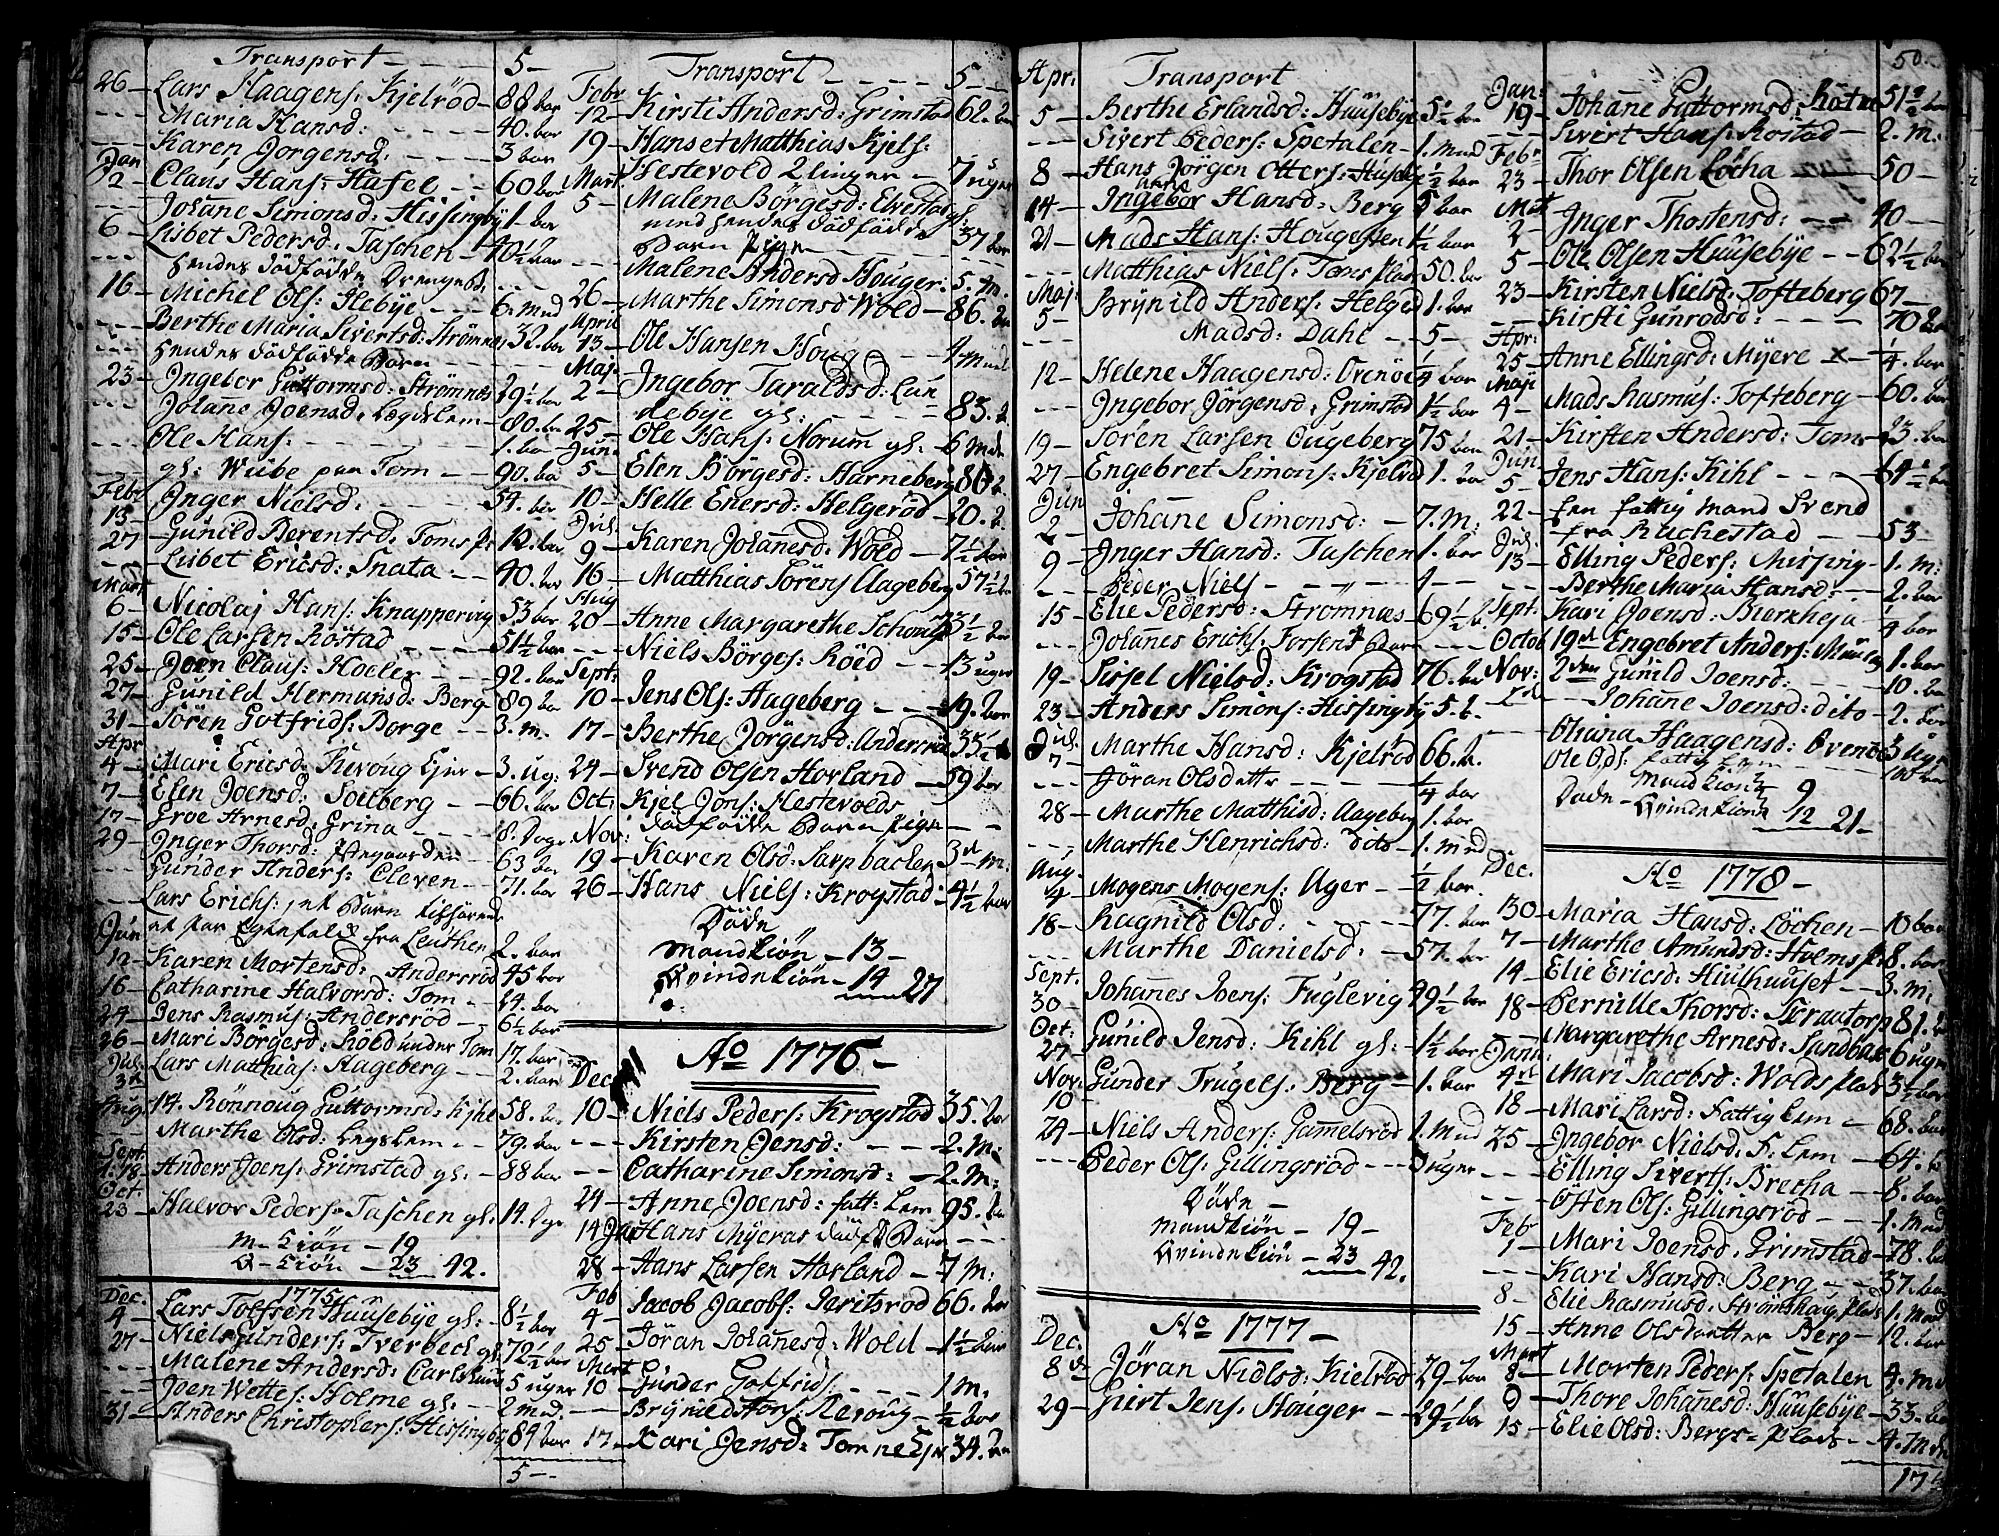 Transport - - - - 5 -
26 - Lars Haagens: Kjelröd - 88 bar
- - - Maria Hansd: - - - - 40. bar
- - - Karen Jörgensd: - - - 3 bar
Jan
2 - Claus Hans: Hafel - - 60 bar
- - - Johane Simonsd: Hissingby 1. bar
6 - Lisbet Pedersd: Taschen - 40½ bar
- - - hendes dödfödde Drengeb.
16 - Michel Ols: Ilebÿe - - - 6. mnd
- - - Berthe Maria Sivertsd: Strömnes 32. bar
- - - hendes dödfödde Barn
23 - Ingebor Guttormsd: Strömnes 29½ bar
- - - Johane Joensd: Legdslem - 80. bar
- - - Ole Hans: - - - - - 1. bar
- - - gl: Wiibe paa Tom - - 90. bar
Febr
13 - Inger Nielsd: - - - - 54. bar
27 - Gunild Berentsd: Toms pl: 12. bar
- - Lisbet Ericsd: Snata - - 40. bar
Mart
6 - Nicolaj Hans: Knappering 53 bar
15 - Ole Larsen Röstad - - 51½ bar
25 - Joen Claus: Hoeler - - 92. bar
27 - Gunild Hermansd: Berg 89 bar
31 - Sören Gotfrids: Borge - - 3. m.
Apr
4 - Mari Ericsd: Kirvoug Ejer - 3. ug:
7 - Elen Joensd: Solberg - - 66. bar
17 - Groe Arnesd: Grina - - - 8. Dage
29 - Inger Thorsd: - - 63 bar
Gunder Anders: Cleven - - 71. bar
Lars Erichs: et Barn tilhörende
et par Egtefolk fra Leuthen 2. bar
Jun
12 - Karen Mortensd: Andersröd 45 bar
16 - Catharine Halvorsd: Tom - - 24. bar
24 - Jens Rasmus: Andersröd - 6½ bar
26 - Mari Börgesd: Röed under Tom 17. bar
Jul. 3d Lars Matthias: Aageberg - - 2. bar
Aug 14. Rönnoug Guttormsd: Kihl 58. bar
- - Marthe Olsd: Legslem - - 79. bar
Sept.
18. Anders Joens: Grimstad gl: - 88 bar
Oct.
23 - Halvor Peders: Taschen gl: 14. Dge
M - Kiön - 19
Q - Kiön - 23 42.
1775
Dec.
4 - Lars Tolfsen Huusebÿe gl: - 8½ bar
27 - Niels Gunders: Tverbeck gl: 72½ bar
- - - Malene Andersd: Carlshuus 5 uger
- - - Joen Wettes: Holme gl: - 2 mnd.
31 - Anders Christophers: Hissingby 89 bar
5 - -
Transport - - - - 5 - -
Febr
12 - Kirsti Andersd: Grimstad 62. bar
19 - Hans et Matthias Kjels:
Hestevold 2linger - - 7 uger
Mart
5 - Malene Börgesd: Elvestad gl.
med hendes dödfödde
Barn Pige - - - 37 bar
- - - Malene Andersd Houger: 5. M.
26 - Marthe Simonsd Wold - 86. bar
April
13 - Ole Hansen Houg - - - 4. mnd
Maj.
2 - Ingebor Taraldsd: Lun
debÿe gl: - - - - 83. b.
25 - Ole Hans: Norum gl: - 6 Mdr
Jun.
5 - Elen Börgesd: Harneberg 86 b.
10 - Helle Enersd: Helgeröd - 20. b.
Jul.
9 - Karen Johanesd: Wold - - 7½ bar
16 - Matthias Sörens Aageberg 57½ b
Aug
20 - Anne Margarethe Schou 33½ bar
- - - Niels Börges: Röed - - 13 uger
Sept:
10 - Jens Ols: Aageberg - - 19. bar
17 - Berthe Jörgensd: Andersröd 35½ b
24 - Svend Olsen Horland - - 59 bar
Oct: Kjel Jons: Hestevolds
Nov: dödfödde Barn Pige - -
19 - Karen Olsd: Sarpbacken 3d M:
26 - Hans Niels: Krogstad: 4½ bar
Döde
Mandkiön - 13 -
Qvindekiön - 14 27
Ao 1776 -
Dec
10 - Niels Peders: Krogstad 35. bar
- - - Kirsten Jensd: - - - 2. M:
- - Catharine Simonsd: - 2. M:
24 - Anne Joensd: fatt: Lem 95. bar
14 Jan Hans Mÿeras dödf Barn - - -
28 - Hans Larsen Horland - 7 M:
Feb
4 - Jacob Jacobs: Geritsröd 66. bar
25 - Jöran Johanesd: Wold - 1½ bar
Mart
10 - Gunder Gotfrids: - - - - 1 M.
- - Brÿnild Hans: Revoug - ½ bar
17 - Kari Jensd: Tomne Ejer 34. bar
Apr. Transport
5 - Berthe Erlandsd: Huusebÿe 5½ bar
- - - Sivert Peders: Spetalen - 1. mnd
8 - Hans Jörgen Otters: Huseby ½ bar
14 - Ingebor Hansd: Berg 5 bar
21 - Mads Hans: Hougesten 1½ bar
- - - Matthias Niels: Toms plads 50. bar
Maj
5 - Brÿnild Anders: Helged 1. bar
- - - Madsd: Dahl - - 5 -
12 - Helene Haagensd: Örenöe ¼ bar
- - - Ingebor Jörgensd: Grimstad 1½ bar
19 - Sören Larsen Ougeberg 75 bar
27 - Engebret Simons: Kjelröd 1. bar
Jun
2 - Johane Simonsd: - 7. M:
9 - Inger Hansd: Taschen 1. bar
2 - - Peder Niels - - 4 - -
15 - Elie Pedersd: Strömnæs - 69½ b.
- - - Johannes Erichs: Torsens Barn - - -
19 - Sissel Nielsd: Krogstad 76. bar
23 - Anders Simons: Hissingby 5. b.
Jul.
7 - Marthe Hansd: Kjelröd 66. b.
- - - Jöran Olsdatter - - - ¼ bar
28 - Marthe Matthisd: Aageberg 1. bar
- - - Marthe Henrichsd: dito - 1. mnd
Aug.
4 - Mogens Mogens: Ager - ½ bar
18 - Ragnild Olsd: - - - - 77. bar
- - Marthe Danielsd: - - 57. bar
Sept.
30 - Johannes Joens: Fuglevig 49½ bar
Oct:
27 - Gunild Jensd: Kihl gl: - 1½ bar
Nov.
10 - Gunder Trugels: Berg - 1. bar
24 - Niels Anders: Gamelsröd 1. Mnd
- - - Peder Ols: Gillingsröd - - - 3 uger
Döde -
Mandkiön - 19 -
Qvindekiön - 23 42.
Ao 1777 -
Dec.
8 de Jöran Nielsd: Kielröd 29 - bar
29 - Giert Jens: Houger - - 29½ bar
50.
Jan:
19 - Johane Guttormsd: 51½ bar
- - Sivert Hans: Rostad - 2. M:
Febr
23 - Thor Olsen Löcha - - 50 -
Mart
2 - Inger Thostensd: - - 40 -
5 - Ole Olsen Huusebÿe - - 62½ bar
23 - Kirsten Nielsd: Tofteberg 67 -
- - Kirsti Gunrodsd: - - - - 70 bar
Apr:
25 - Anne Ellingsd: Mÿere x - ¼. bar
Maj
4 - Mads Rasmus: Tofteberg - 60. bar
21 - Kirsten Andersd: Toms - 23. bar
Jun.
5 - Jens Hans: Kihl - - - 64½ bar
22 - En fattig mand Svend
fra Rachestad - - 53 -
Jul.
13 - Elling Peders: Missing - 1. M:
- - - Berthe Maria Hansd: - - 2. bar
Sept. Kari Joensd: Bierkheja - ¼ bar
Octob 19d Engebret Anders: Muulag 1. bar
Nov: 2den Gunild Joensd: - - - 10. bar
- - - Johane Joensd: dito - 2. bar
- - - Oliana Haagensd: Örenöe 3 Uger
Ole Ols: fattig Lem - - 100 bar
Döde - Mandkiön 9
Qvindekiön 12 21 -
Ao 1778 -
Dec.
30 - Maria Hansd: Löchen - 10 bar
7 - Marthe Amundsd: Holms pl. 8. bar
14 - Elie Ericsd: Hiulhuuset - - 3. M:
18 - Pernille Thorsd: Scrautorp 81. b.
- - Margarethe Arnesd: Sandbæk 6 uger
Janu:
4d - Mari Jacobsd: Wolds plads 3½ bar
18 - Mari Larsd: Fattiglem - 68. bar
25 - Ingebor Nielsd: F. Lem - 64. b
- - - Elling Siverts: Brecha - 8. bar
- - - Osten Ols: Gillingsröd - - 1. Mnd
Feb
1 - Mari Joensd: Grimstad - 78. bar
- - - Kari Hansd: Berg - - 37. bar
8 - Elie Rasmusd: Strömshaug plads 1. Mnd
15 - Anne Olsdatter Berg - 12. bar
Mart
8 - Morten Peders: Spetalen 4. Md
9 - Thore Johanesd: Huusebÿe - 33. bar
15 - Elie Olsd: Bergs-plads - 4. Mdr
17